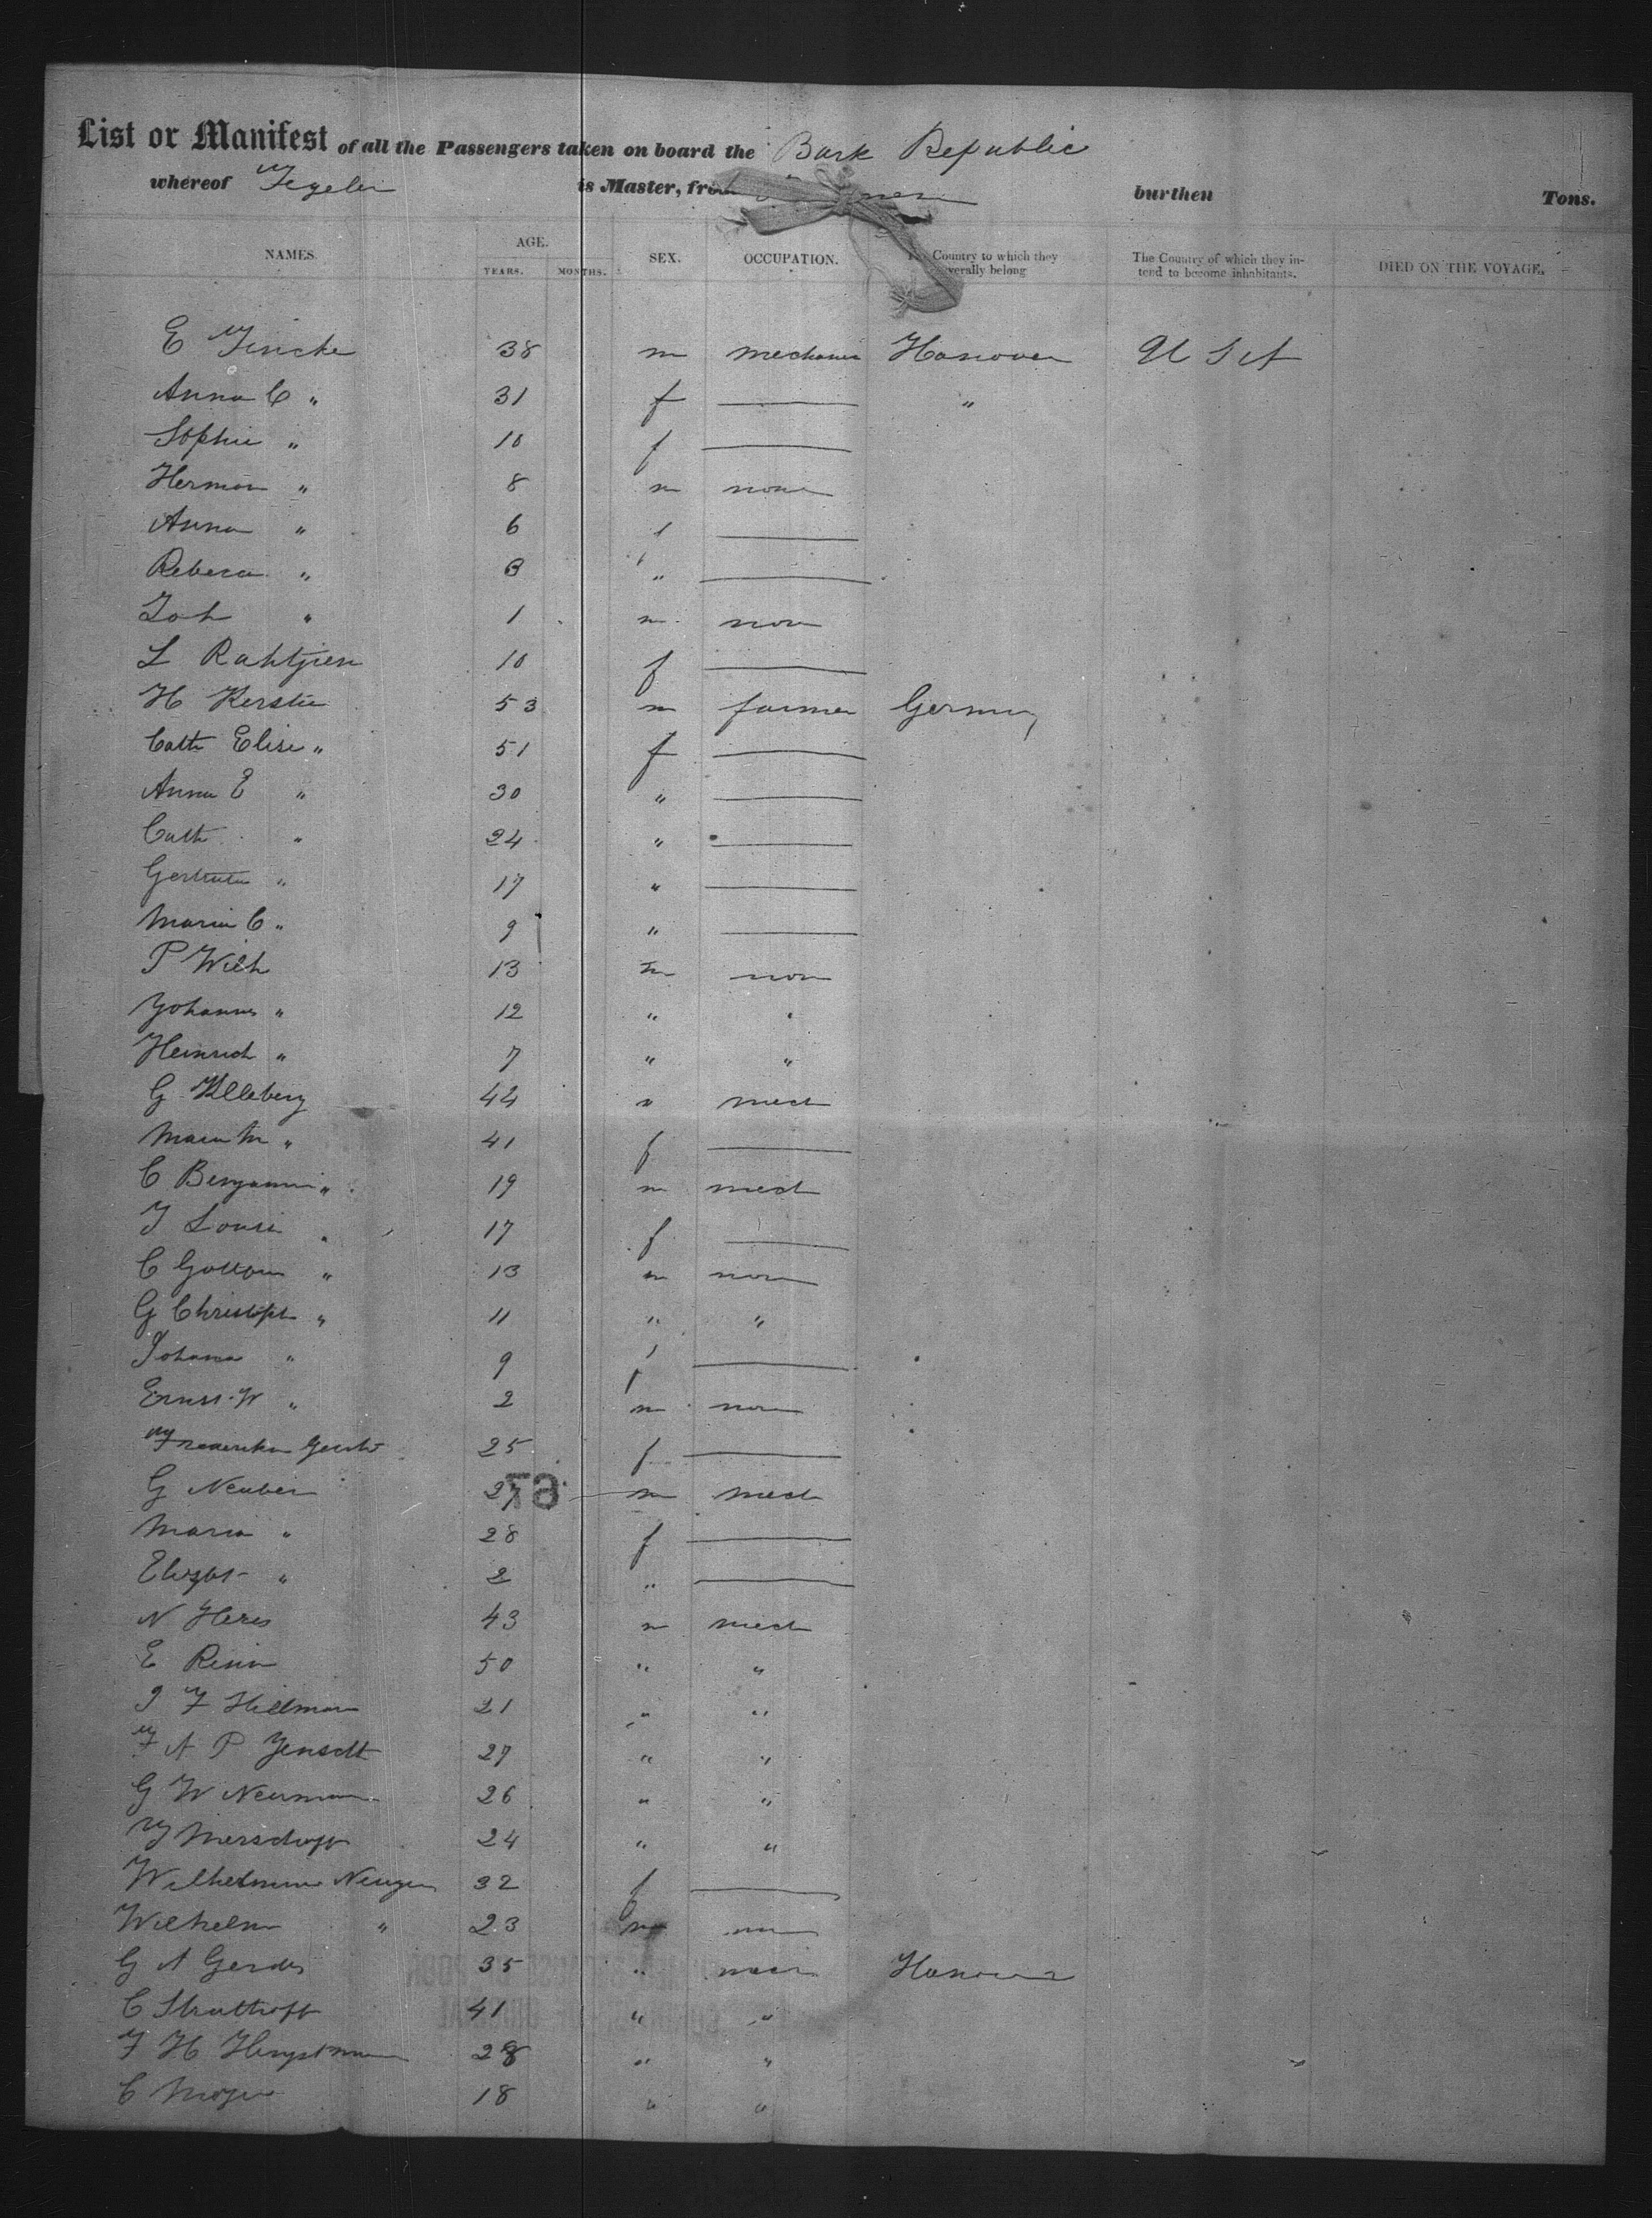 List or Manifest of all the Passengers taken on board the Bark Republic
whereof Tegeler is Master, from burthen Tons.
NAMES. AGE. YEARS. MONTHS. SEX. OCCUPATION. Country to which they severally belong The Country of which they intend to become inhabitants. DIED ON THE VOYAGE.
E 38 m mechanic Hanover U S A
Anna C " 31 f "
Sophie " 10 f
Herman " 8 m none
Anna " 6 f
Rebeca " 3 "
Joh " 1 m non
L Rahtjien 10 f
H Kerstie 53 m farmer Germny
Cath Elise " 51 f
Anna E " 30 "
Cath " 24 "
Gertrude " 17 "
Maria C " 9 "
P Wilh 13 m non
Johannes " 12 " "
Heinrich " 7 " "
G Illeberg 44 " mech
Maria M " 41 f
C Benjamin " 19 m mech
J Louise " 17 f
C " 13 m non
G Christoph " 11 " "
Johana " 9 f
Ernst W " 2 m non
Frederike 25 f
G Neuber 27 m mech
Maria " 28 f
Elizbt " 2 "
N Heres 43 m mech
E 50 " "
J F Hillman 21 " "
F A P 27 " "
G W Neuman 26 " "
24 " "
Wilhelmine 32 f
Wilhelm " 23 m
G A Gerdes 35 " mech Hanover
C Struthoff 41 " "
F H 28 " "
C Meyer 18 " "